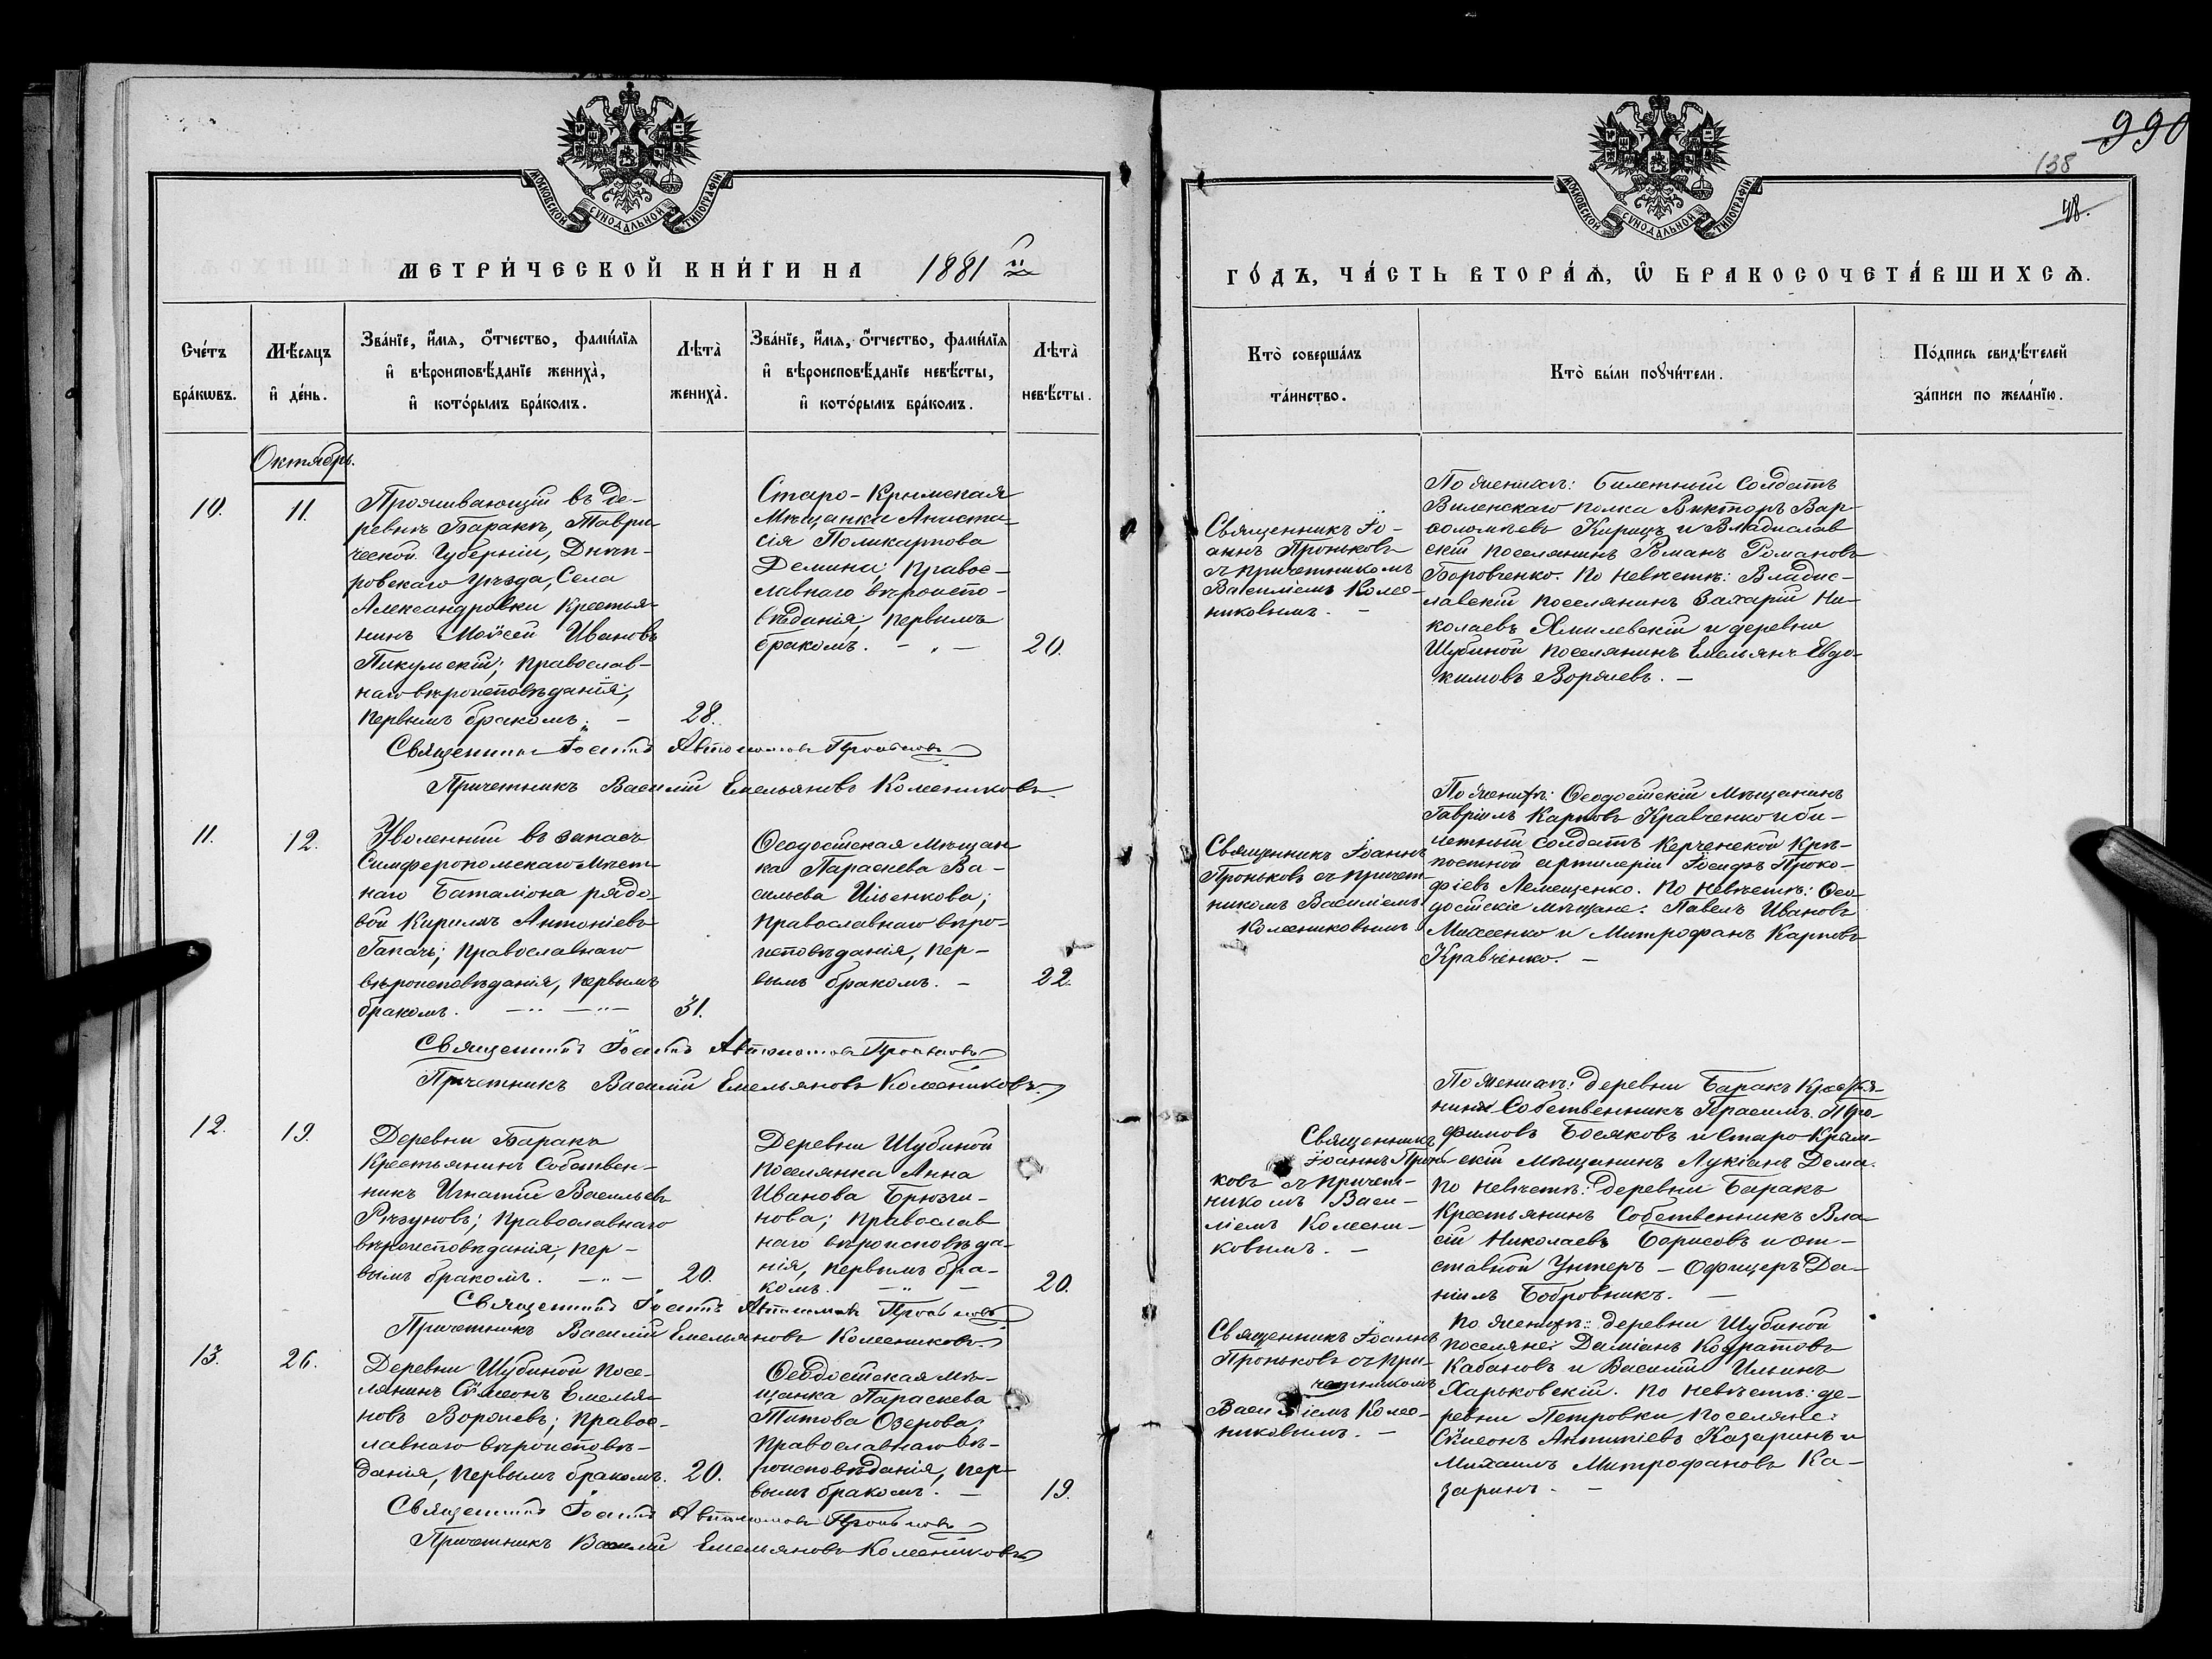 МОСКОВСКОЙ СѴНОДАЛЬНОЙ ТИПОГРАФІИ
МЕТРИ́ЧЕСКОЙ КНИ́ГИ НА 1881 й
Сче́тъ бра́кѡвъ.
Мѣ́сяцъ и҆ де́нь.
Зва́нїе, и҆́мѧ, о҆́тчество, фами́лїѧ и҆ вѣроисповѣ́данїе жениха̀, и҆ кото́рымъ бра́комъ.
Лѣта̀ жениха̀.
Зва́нїе, и҆́мѧ, о҆́тчество, фами́лїѧ и҆ вѣроисповѣ́данїе невѣ́сты, и҆ кото́рымъ бра́комъ.
Лѣта̀ невѣ́сты.
Октябрь.
10.
11.
Проживающій въ де-
ревнѣ Баракъ, Таври-
ческой Губерніи, Днѣп-
ровскаго уѣзда, Села
Александровки Крестья-
нинъ Моѵсей Ивановъ
Пикумскій; православ-
наго вѣроисповѣданія,
первымъ бракомъ. –
28.
Старо-Крымская
Мѣщанка Анаста-
сія Поликарпова
Демина; правос-
лавнаго вѣроиспо-
вѣданія, первымъ
бракомъ. – „ –
20.
Священникъ Іоаннъ Автономовъ Проньковъ
Причетникъ Василій Емельяновъ Колесниковъ.
11.
12.
Уволенный въ запасъ
Симферопольскаго Мѣст-
наго Баталіона рядо-
вой Кирилъ Антоніевъ
Гапачь; Православнаго
вѣроисповѣданія, первымъ
бракомъ. – „ – „ –
31.
Ѳеодосійская Мѣщан-
ка Параскева Ва-
сильева Ильенкова;
Православнаго вѣро-
исповѣданія, пер-
вымъ бракомъ. –
22.
Священникъ Іоаннъ Автономовъ Проньковъ
Причетникъ Василій Емельяновъ Колесниковъ.
12.
19.
Деревни Баракъ
Крестьянинъ Собствен-
никъ Игнатій Васильевъ
Рѣзуновъ; Православнаго
вѣроисповѣданія, пер-
вымъ бракомъ. – „ –
20.
Деревни Шубиной
поселянка Анна
Иванова Брюзги-
нова; православ
наго вѣроисповѣда-
нія, первымъ бра-
комъ. – „ –
20.
Священникъ Іоаннъ Автономовъ Проньковъ
Причетникъ Василій Емельяновъ Колесниковъ.
13.
26.
Деревни Шубиной посе-
лянинъ Сѵмеонъ Емелья-
новъ Воряевъ; правос-
лавнаго вѣроисповѣ-
данія, первымъ бракомъ.
20.
Ѳеодосійская мѣ-
щанка Параскева
Титова Озерова;
Православнаго вѣ-
роисповѣданія, пер-
вымъ бракомъ. –
19.
Священникъ Іоаннъ Автономовъ Проньковъ
Причетникъ Василій Емельяновъ Колесниковъ
990
138
МОСКОВСКОЙ СѴНОДАЛЬНОЙ ТИПОГРАФІИ
ГО́ДЪ, ЧА́СТЬ ВТОРА́Ѧ, Ѽ БРАКОСОЧЕТА́ВШИХСѦ.
Кто̀ соверша́лъ та́инство.
Кто̀ бы́ли поꙋчи́тели.
По́дпись свидѣ́телей за́писи по жела́нїю.
Священникъ Іо-
аннъ Проньковъ
съ причетникомъ
Василіемъ Колес-
никовымъ. –
По женихѣ: билетный солдатъ
Виленскаго полка Викторъ Вар-
ѳоломѣевъ Кирицъ и Владислав
скій поселянинъ Романъ Романовъ
Боровченко. По невѣстѣ: Владис-
лавскій поселянинъ Захарій Ни-
колаевъ Хмилевскій и деревни
Шубиной поселянинъ Емельянъ Евдо-
кимовъ Воряевъ. –
Священникъ Іоаннъ
Проньковъ съ причет-
никомъ Василіемъ
Колесниковымъ
По женихѣ: Ѳеодосійскій мѣщанинъ
Гавріилъ Карповъ Кравченко и би-
летный солдатъ Керченской Крѣ-
постной артилеріи Іосифъ Проко-
фіевъ Лемещенко. По невѣстѣ: Ѳео-
досійскіе мѣщане: Павелъ Ивановъ
Мисеенко и Митрофанъ Карповъ
Кравченко. –
Священникъ
Іоаннъ Пронь-
ковъ съ причет-
никомъ Васи-
ліемъ Колесни-
ковымъ. –
По женихѣ: деревни Баракъ Крестья-
нинъ Собственникъ Герасимъ Тро-
фимовъ Босяковъ и Старо-Крым-
скій мѣщанинъ Лукіанъ Дема.
По невѣстѣ: деревни Баракъ
Крестьянинъ Собственникъ Вла-
сій Николаевъ Борисовъ и от-
ставной Унтеръ-Офицеръ Да-
ніилъ Бобровникъ. –
Священникъ Іоаннъ
Проньковъ съ при-
четникомъ
Василіемъ Колес-
никовымъ. –
По женихѣ: деревни Шубиной
поселяне: Даміанъ Кодратовъ
Кабановъ и Василій Ильинъ
Харьковскій. По невѣстѣ: де-
ревни Петровки поселяне:
Сѵмеонъ Антипіевъ Казаринъ и
Михаилъ Митрофановъ Ка-
заринъ. –